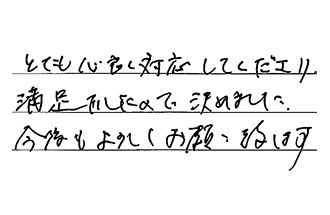 とても心良く対応してくださり、
満足致したので決めました。
今後もよろしくお願い致します